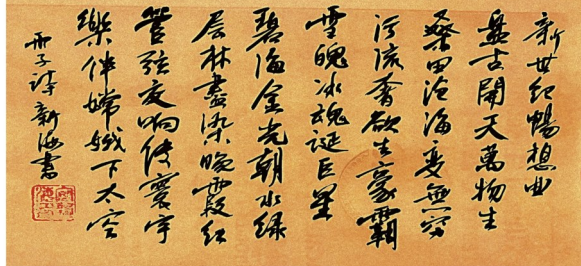 新世纪暢想曲
盤古開天萬物生
桑田沧海变無穷
污流奢欲生豪霸
雪魄冰魂誕巨星
碧海金光朝水绿
层林盡染晚霞红
管弦交响传寰宇
樂伴嫦娥下太空
冊子詩新海書